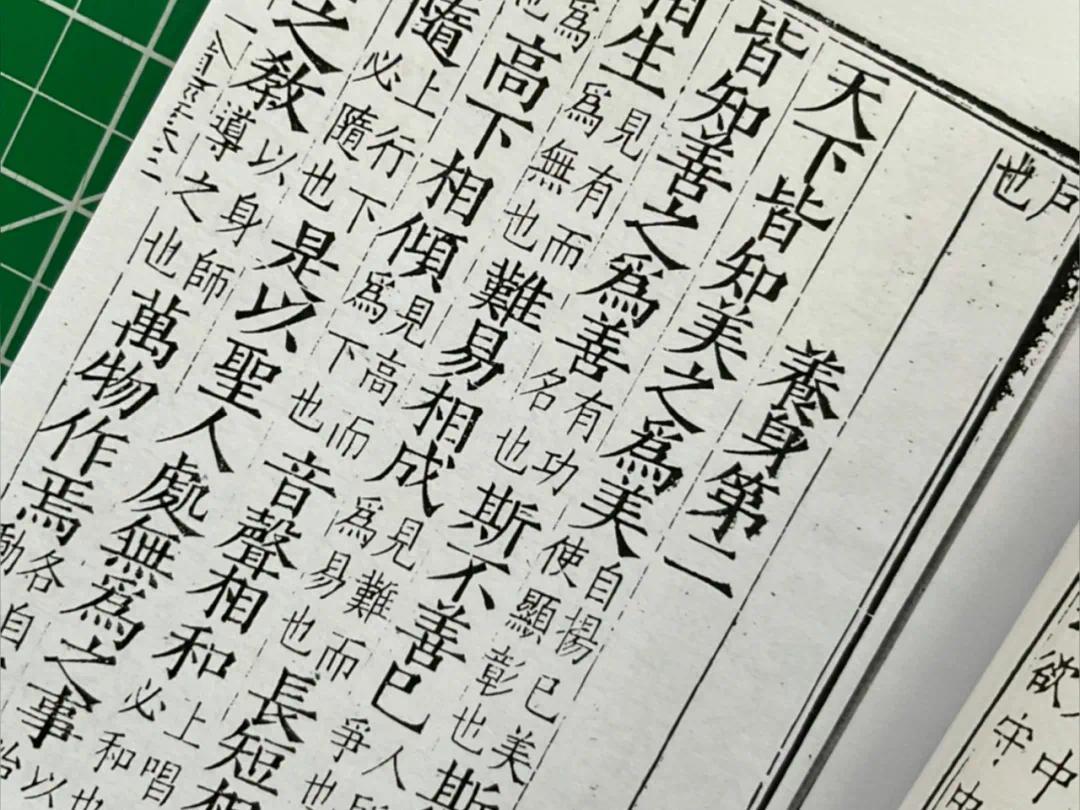 欲中
守中
戶
也
養身第二
天下皆知美之爲美自揚己美使顯彰也斯
皆知善之爲善有功名也斯不善已人所爭也
相生見有而爲無也難易相成見難而爲易也長短相
爲也高下相傾見高而爲下也音聲相和上唱必和也
隨上行下必隨也是以聖人處無爲之事以治
之教以身師導之也萬物作焉各自動